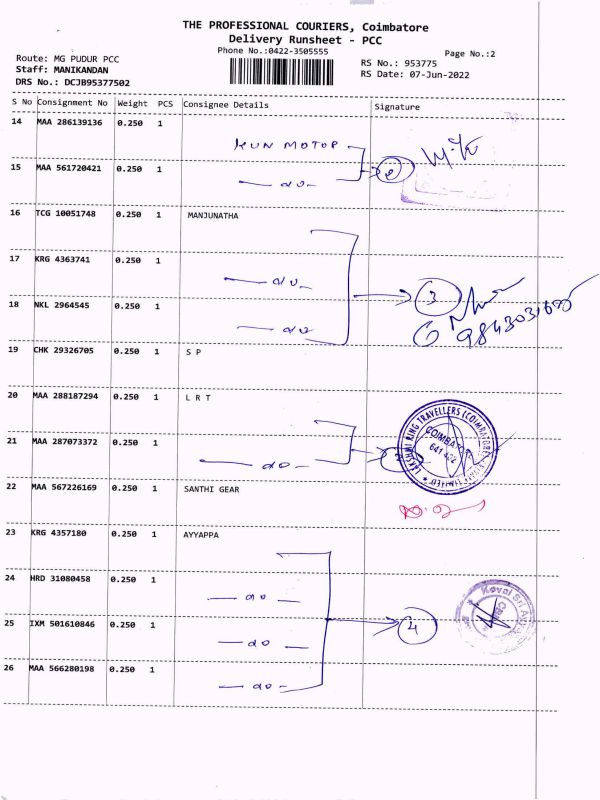 THE PROFESSIONAL COURIERS, Coimbatore
Delivery Runsheet - PCC
Phone No.:0422-3505555
Page No.:2
Route: MG PUDUR PCC
Staff: MANIKANDAN
DRS No.: DCJB95377502
RS No.: 953775
RS Date: 07-Jun-2022
S No Consignment No Weight PCS Consignee Details Signature
14 MAA 286139136 0.250 1
KUN MOTOR
15 MAA 561720421 0.250 1
— do — 2
16 TCG 10051748 0.250 1 MANJUNATHA
17 KRG 4363741 0.250 1
— do — 3
18 NKL 2964545 0.250 1
— do —
19 CHK 29326705 0.250 1 S P
20 MAA 288187294 0.250 1 L R T
LAKSHMI RING TRAVELLERS (COIMBATORE) PRIVATE LIMITED
COIMBATORE
641 402
21 MAA 287073372 0.250 1
— do — 2
22 MAA 567226169 0.250 1 SANTHI GEAR
23 KRG 4357180 0.250 1 AYYAPPA
24 HRD 31080458 0.250 1
— do —
Kovai Sri
25 IXM 501610846 0.250 1
— do — 4
26 MAA 566280198 0.250 1
— do —